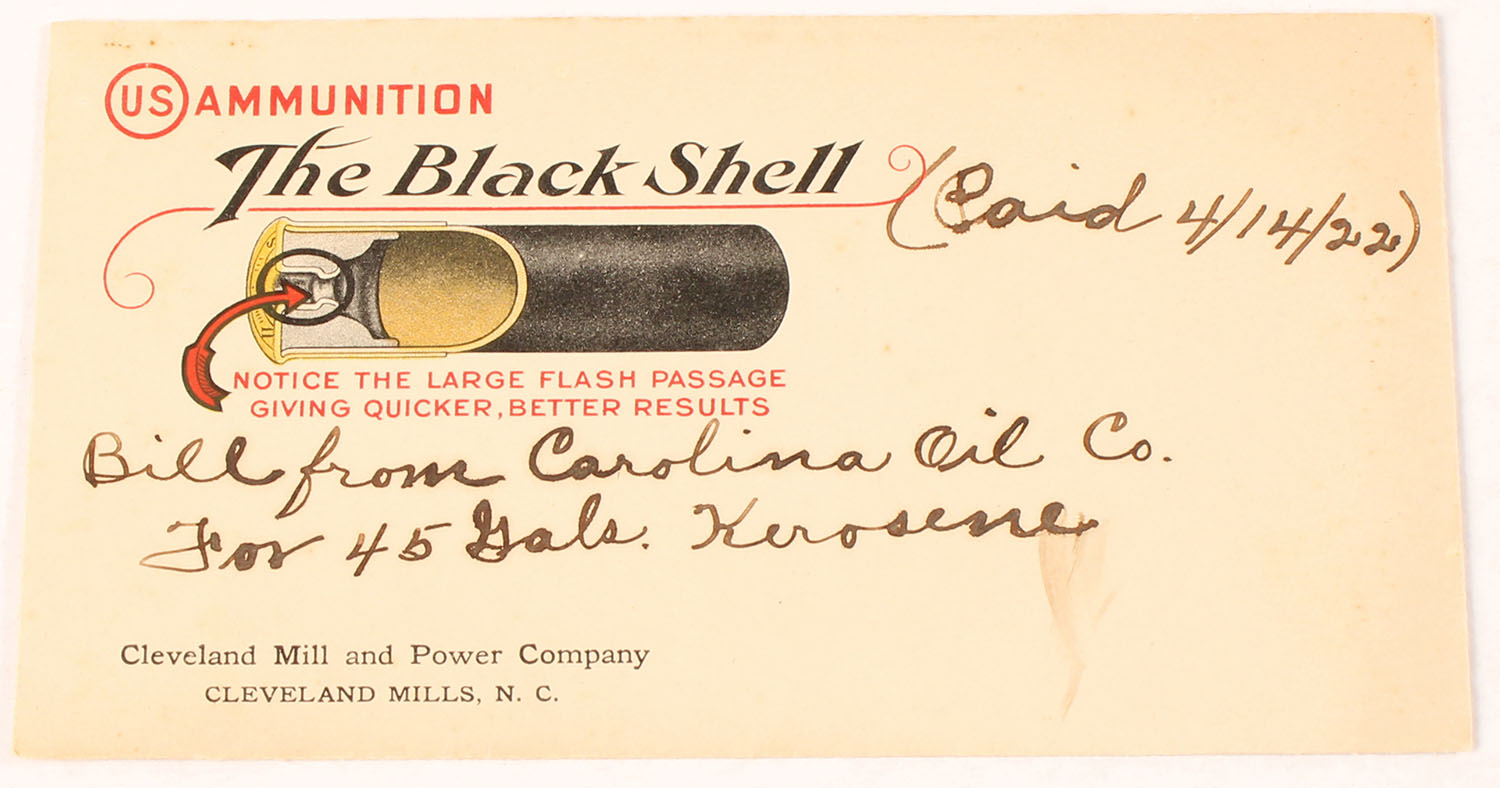 US AMMUNITION
The Black Shell
(Paid 4/14/22)
NOTICE THE LARGE FLASH PASSAGE
GIVING QUICKER, BETTER RESULTS
Bill from Carolina Oil Co.
For 45 Gals. Kerosene
Cleveland Mill and Power Company
CLEVELAND MILLS, N. C.